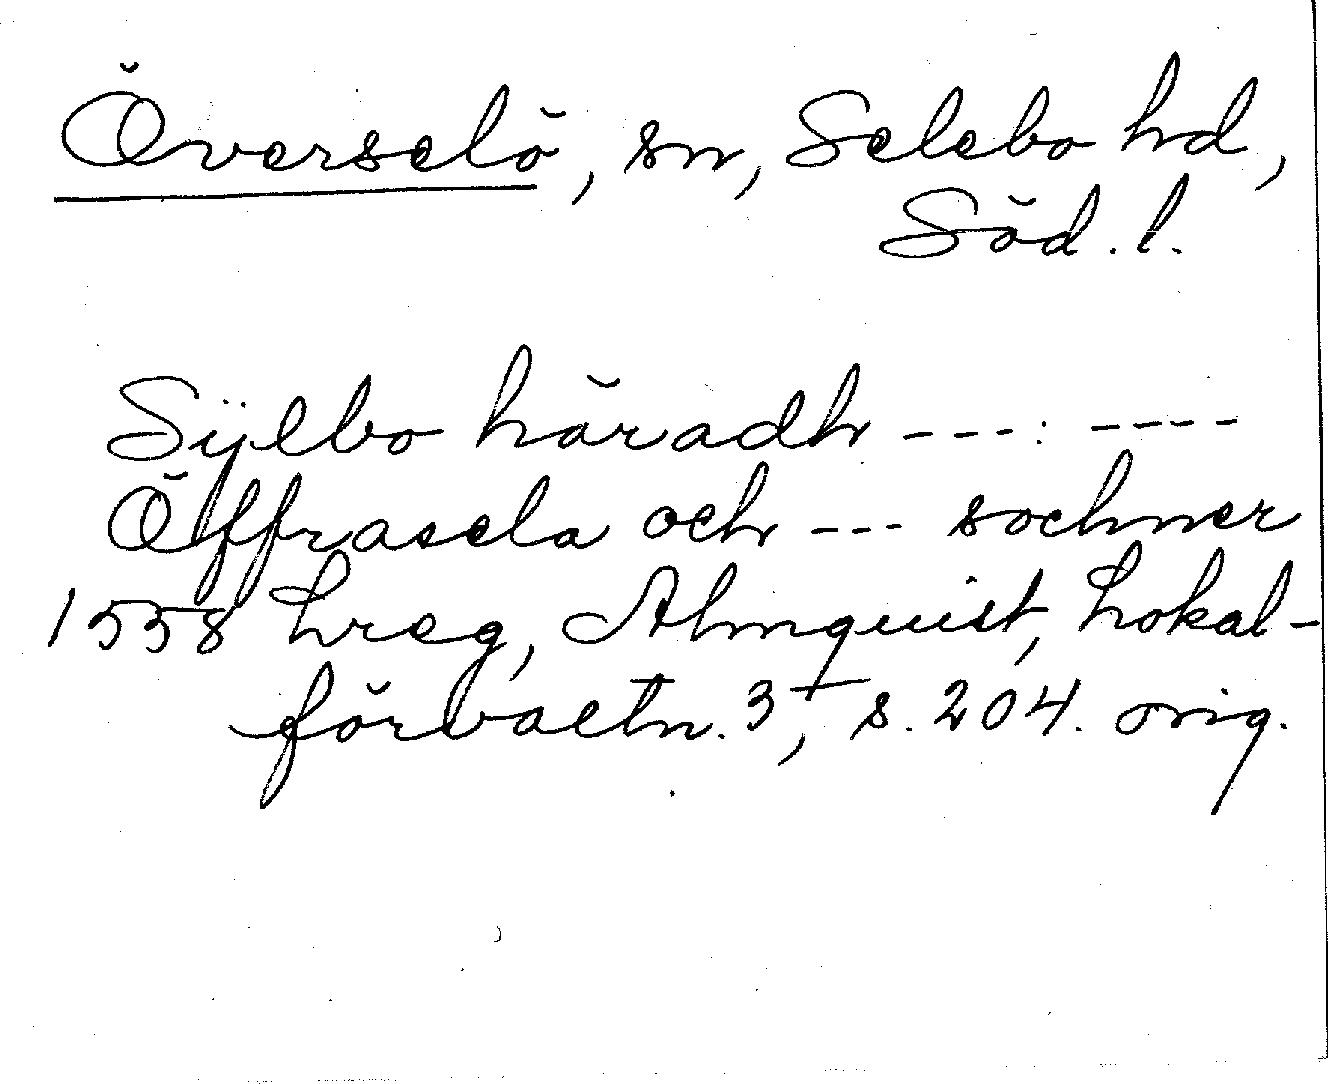 Överselö, sn, Selebo hd,
Söd. l.
Sÿlbo häradh ---: ----
Öffrasela och --- sochner
1558 Lreg, Almquist, Lokal-
förvaltn. 3, s. 204. orig.